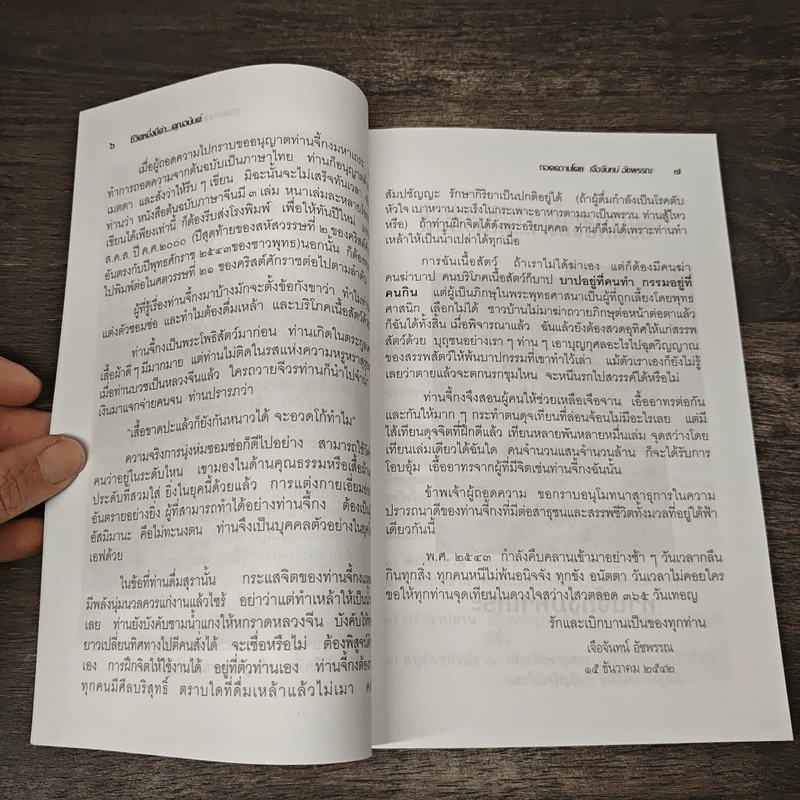 ๖ ชีวิตหนึ่งมีค่า...คุณอนันต์
เมื่อผู้ถอดความไปกราบขออนุญาตท่านจี้กงมหาเถระ
ทำการถอดความจากต้นฉบับเป็นภาษาไทย ท่านก็อนุญาตด้วย
เมตตา และสั่งว่าให้รีบ ๆ เขียน มิฉะนั้นจะไม่เสร็จทันเวลา
ท่านว่า หนังสือต้นฉบับภาษาจีนมี ๓ เล่ม หนาเล่มละหลาย
เขียนได้เพียงเท่านี้ ก็ต้องรีบส่งโรงพิมพ์ เพื่อให้ทันปีใหม่
ส.ค.ส. ปี ค.ศ.๒๐๐๐ (ปีสุดท้ายของสหัสวรรษที่ ๒ ของคริสต์
อันตรงกับปีพุทธศักราช ๒๕๔๓ของชาวพุทธ)นอกนั้น ก็ต้อง
ไปพิมพ์ต่อในศตวรรษที่ ๒๑ ของคริสต์ศักราชต่อไปตามลำดับ
ผู้ที่รู้เรื่องท่านจี้กงมาบ้างมักจะตั้งข้อกังขาว่า ทำไมท่าน
แต่งตัวซอมซ่อ และทำไมต้องดื่มเหล้า และบริโภคเนื้อสัตว์ด้วย
ท่านจี้กงเป็นพระโพธิสัตว์มาก่อน ท่านเกิดในตระกูล
เสื้อผ้าดี ๆ มีมากมาย แต่ท่านไม่ติดในรสแห่งความหรูหรา
เมื่อท่านบวชเป็นหลวงจีนแล้ว ใครถวายจีวรท่านก็นำไปจำนำ
เงินมาแจกจ่ายคนจน ท่านปรารภว่า
"เสื้อขาดปะแล้วก็ยังกันหนาวได้ จะอวดโก้ทำไม"
ความจริงการนุ่งห่มซอมซ่อก็ดีไปอย่าง สามารถใช้วัด
คนว่าอยู่ในระดับไหน เขามองในด้านคุณธรรมหรือเสื้อผ้า
ประดับที่สวมใส่ ยิ่งในยุคนี้ด้วยแล้ว การแต่งกายเยี่ยม
อันตรายอย่างยิ่ง ผู้ที่สามารถทำได้อย่างท่านจี้กง ต้องเป็น
อัสมิมานะ คือไม่ทะนงตน ท่านจึงเป็นบุคคลตัวอย่างในยุค
เอฟด้วย
ในข้อที่ท่านดื่มสุรานั้น กระแสจิตของท่านจี้กง
มีพลังนุ่มนวลควรแก่งานแล้วไซร้ อย่าว่าแต่ทำเหล้าให้เป็นน้ำ
เลย ท่านยังบังคับชามน้ำแกงให้หกราดหลวงจีน บังคับให้
ยาวเปลี่ยนทิศทางไปตีคนสั่งได้ จะเชื่อหรือไม่ ต้องพิสูจน์
เอง การฝึกจิตให้ใช้งานได้ อยู่ที่ตัวท่านเอง ท่านจี้กงต้อง
ทุกคนมีศีลบริสุทธิ์ ตราบใดที่ดื่มเหล้าแล้วไม่เมา
ถอดความโดย เจือจันทน์ อัชพรรณ ๗
สัมปชัญญะ รักษากิริยาเป็นปกติอยู่ได้ (ถ้าผู้ดื่มกำลังเป็นโรคตับ
หัวใจ เบาหวาน มะเร็งในกระเพาะอาหารตามมาเป็นพรวน ท่านสู้ไหว
หรือ) ถ้าท่านฝึกจิตได้ดังพระอริยบุคคล ท่านก็ดื่มได้เพราะท่านทำ
เหล้าให้เป็นน้ำเปล่าได้ทุกเมื่อ
การฉันเนื้อสัตว์ ถ้าเราไม่ได้ฆ่าเอง แต่ก็ต้องมีคนฆ่า
คนฆ่าบาป คนบริโภคเนื้อสัตว์ก็บาป บาปอยู่ที่คนทำ กรรมอยู่ที่
คนกิน แต่ผู้เป็นภิกษุในพระพุทธศาสนาเป็นผู้ที่ถูกเลี้ยงโดยพุทธ
ศาสนิก เลือกไม่ได้ ชาวบ้านไม่มาฆ่าถวายภิกษุต่อหน้าต่อตาแล้ว
ก็ฉันได้ทั้งสิ้น เมื่อพิจารณาแล้ว ฉันแล้วยังต้องสวดอุทิศให้แก่สรรพ
สัตว์ด้วย บุถุชนอย่างเรา ๆ ท่าน ๆ เอาบุญกุศลอะไรไปฉุดวิญญาณ
ของสรรพสัตว์ให้พ้นบาปกรรมที่เขาทำไว้เล่า แม้ตัวเราเองก็ยังไม่รู้
เลยว่าตายแล้วจะตกนรกขุมไหน จะหนีนรกไปสวรรค์ได้หรือไม่
ท่านจี้กงจึงสอนผู้คนให้ช่วยเหลือเจือจาน เอื้ออาทรต่อกัน
และกันให้มาก ๆ กระทำตนดุจเทียนที่ล่อนจ้อนไม่มีอะไรเลย แต่มี
ไส้เทียนดุจจิตที่ฝึกดีแล้ว เทียนหลายพันหลายหมื่นเล่ม จุดสว่างโดย
เทียนเล่มเดียวได้ฉันใด คนจำนวนแสนจำนวนล้าน ก็จะได้รับการ
โอบอุ้ม เอื้ออาทรจากผู้ที่มีจิตเช่นท่านจี้กงฉันนั้น
ข้าพเจ้าผู้ถอดความ ขอกราบอนุโมทนาสาธุการในความ
ปรารถนาดีของท่านจี้กงที่มีต่อสาธุชนและสรรพชีวิตทั้งมวลที่อยู่ใต้ฟ้า
เดียวกันนี้
พ.ศ. ๒๕๔๓ กำลังคืบคลานเข้ามาอย่างช้า ๆ วันเวลากลืน
กินทุกสิ่ง ทุกคนหนีไม่พ้นอนิจจัง ทุกขัง อนัตตา วันเวลาไม่คอยใคร
ขอให้ทุกท่านจุดเทียนในดวงใจสว่างไสวตลอด ๓๖๕ วันเทอญ
รักและเบิกบานเป็นของทุกท่าน
เจือจันทน์ อัชพรรณ
๑๕ ธันวาคม ๒๕๔๒